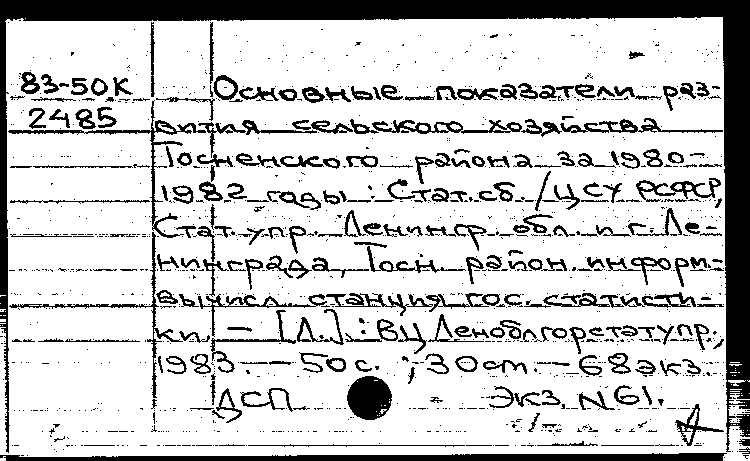 83-50К Основные показатели раз-
2485 вития сельского хозяйства
Тосненского района за 1980-
1982 годы : Стат. сб. / ЦСУ РСФСР,
Стат. упр. Ленингр. обл. и г. Ле-
нинграда, Тосн. район. информ.-
вычисл. станция гос. статисти-
ки. — [Л.] : ВЦ Леноблгорстатупр.,
1983. — 50 с. ; 30 см. — 68 экз.
ДСП Экз. N 61.